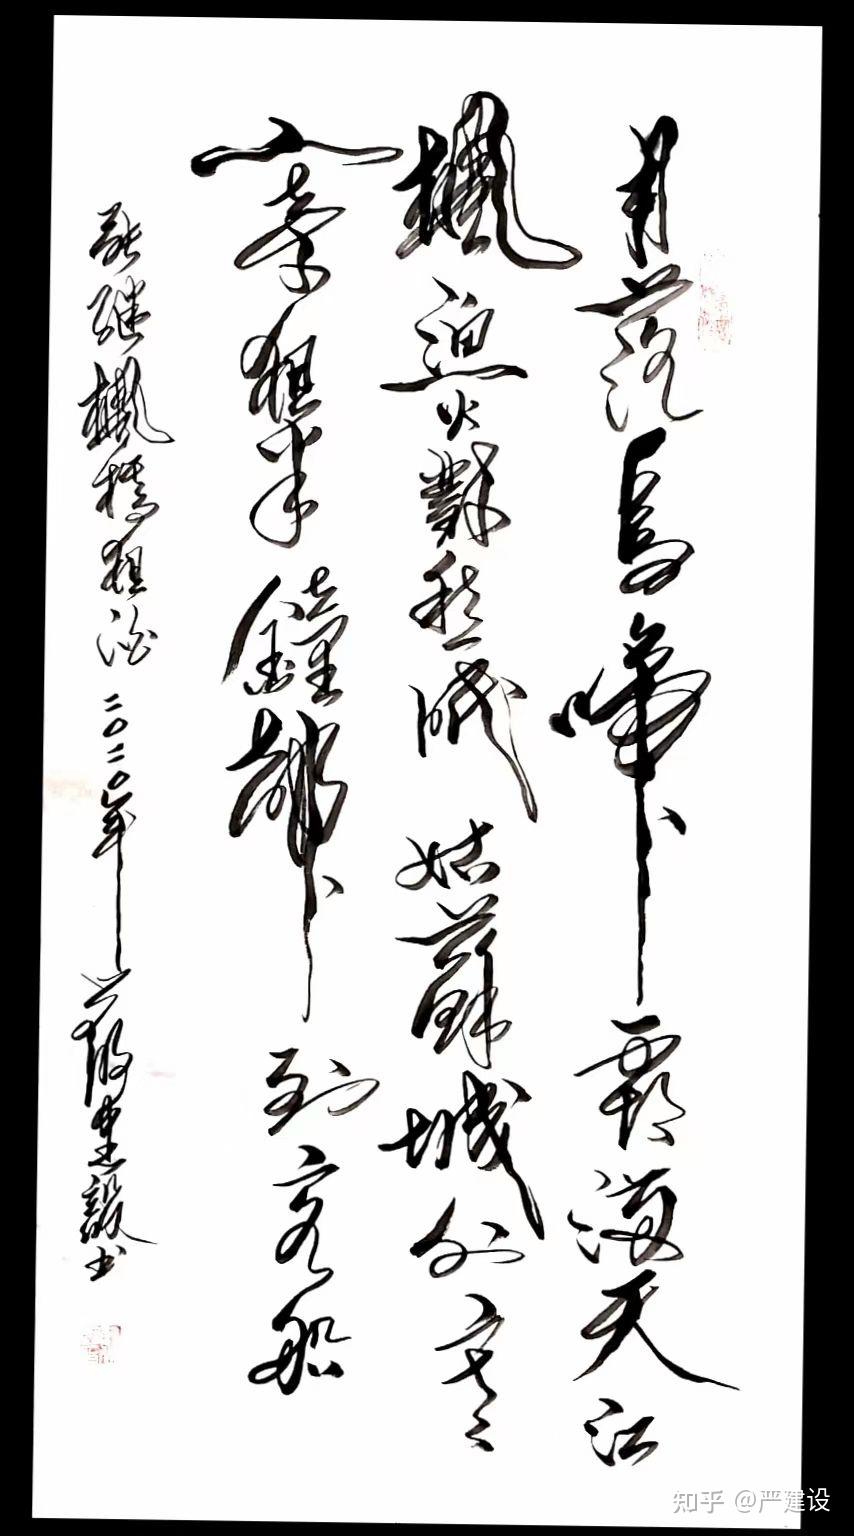 月落烏啼霜滿天江
楓漁火對愁眠姑蘇城外寒
山寺夜半鐘聲到客船
張繼楓橋夜泊 二〇二〇年 嚴建設書
知乎 @严建设